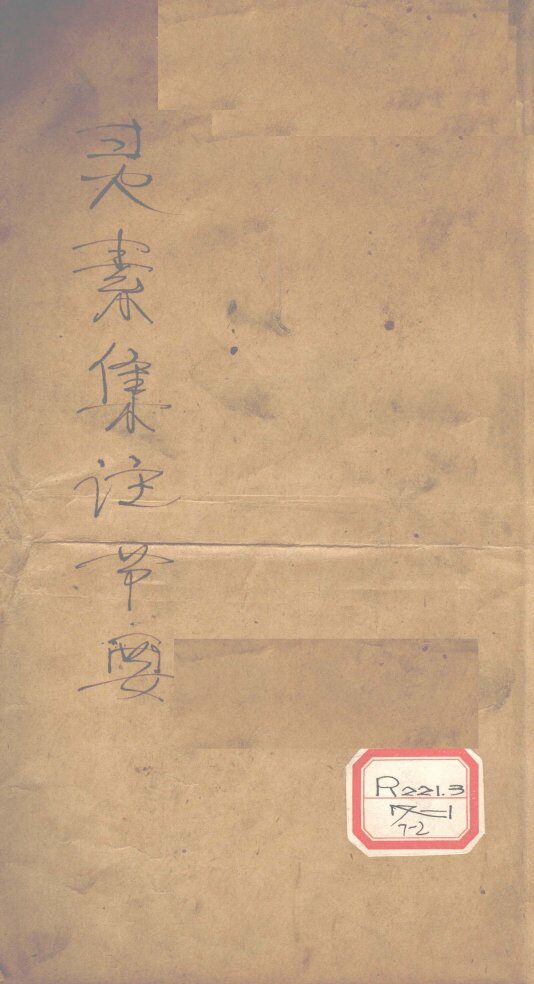 灵素集注节要
R221.3
7-2